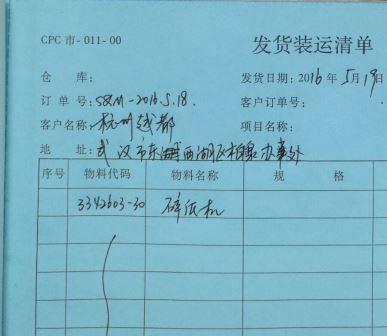 CPC 市-011-00
发货装运清单
仓 库: 发货日期: 2016 年 5月19日
订 单 号: S&M-2016.5.18. 客户订单号:
客户名称: 杭州越都 项目名称:
地 址: 武汉市东西湖区 办事处
序号 物料代码 物料名称 规 格
3342603-30 碎纸机